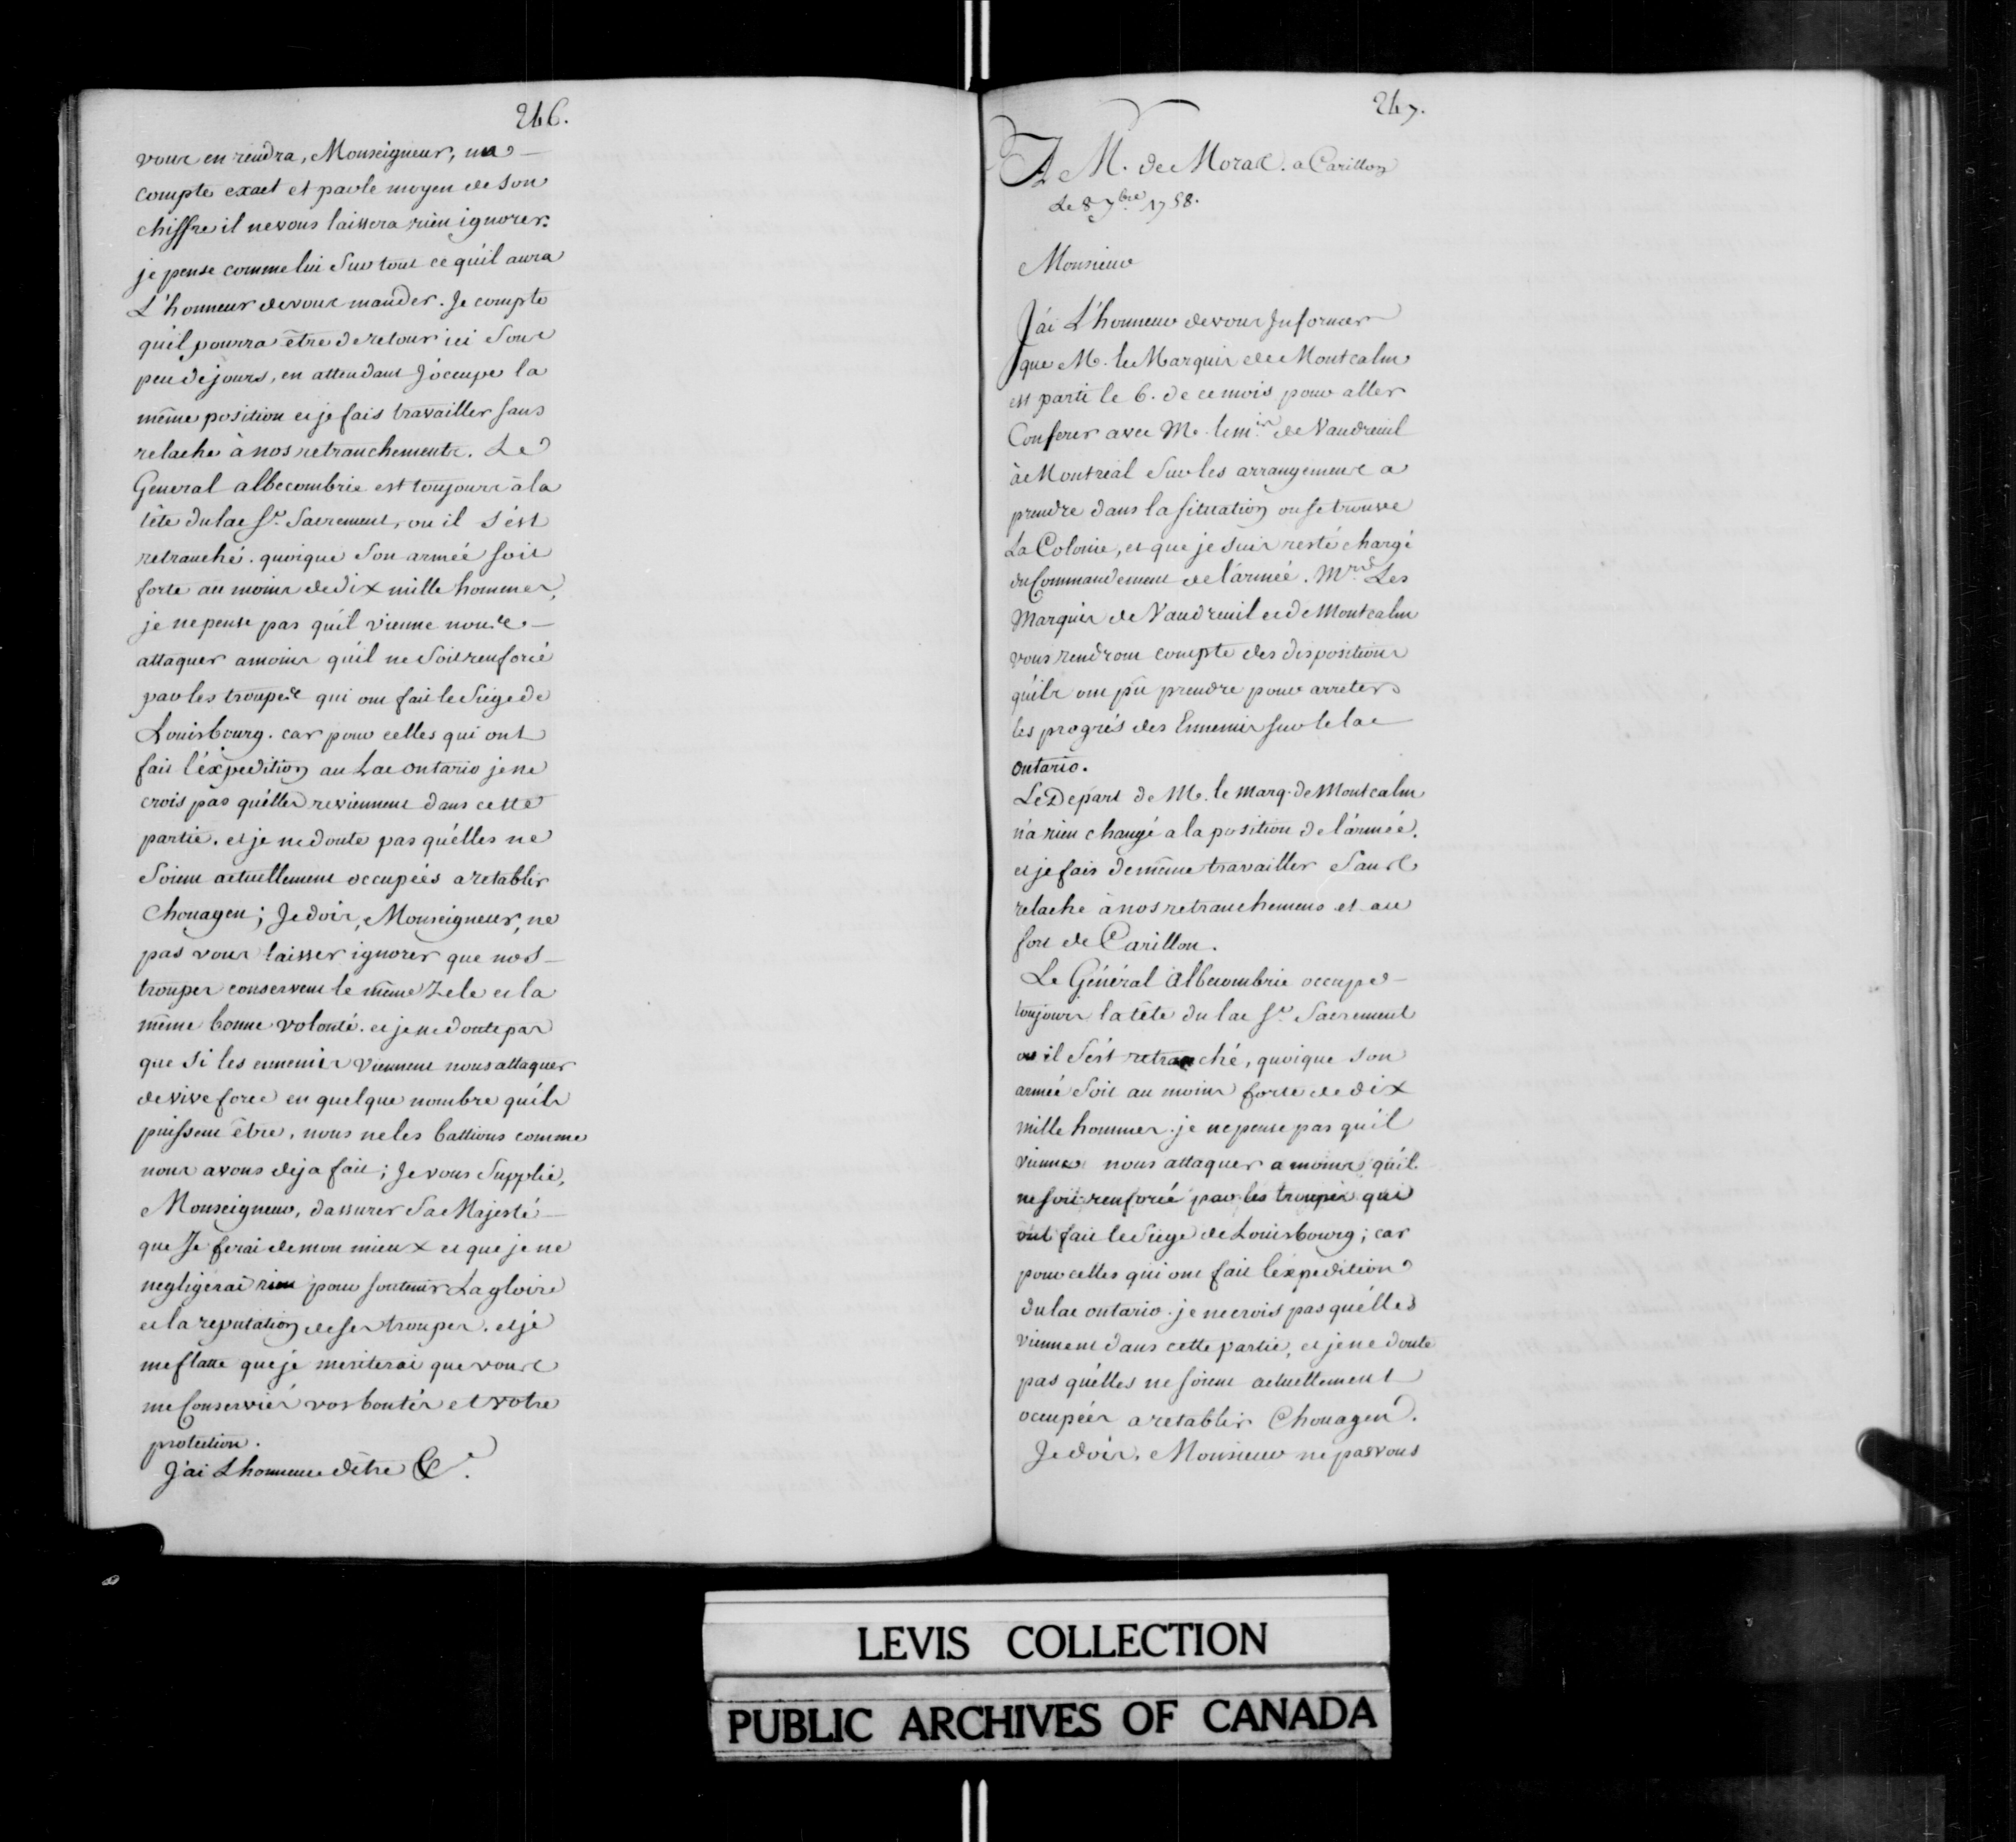 246.
vous en rendra, Monseigneur, un
compte exact et par le moyen de son
chiffre il ne vous laissera rien ignorer.
je pense comme lui Sur tout ce qu'il aura
L'honneur de vous mander. Je compte
qu'il pourra être de retour ici Sous
peu de jours, en attendant J'occupe la
même position et je fais travailler sans
relache à nos retranchements. Le
General albecombrie est toujours à la
tête du lac St. Sacrement, ou il s'est
retranché. quoique Son armée soit
forte au moins de dix mille hommes,
je ne pense pas qu'il vienne nous
attaquer amoins qu'il ne Soit renforcé
par les troupes qui ont fait le Siege de
Louisbourg. car pour celles qui ont
fait l'éxpedition au Lac ontario je ne
crois pas qu'elles reviennent dans cette
partie. et je ne doute pas qu'elles ne
Soient actuellement occupées a retablir
Chouagen; Je dois, Monseigneur, ne
pas vous laisser ignorer que nos
troupes conservent le même Zele et la
même bonne volonté. et je ne doute pas
que Si les ennemis viennent nous attaquer
de vive force en quelque nombre qu'ils
puissent être, nous ne les battions comme
nous avons deja fait; Je vous Supplie,
Monseigneur, dassurer Sa Majesté
que Je ferai de mon mieux et que je ne
negligerai rien pour soutenir La gloire
et la reputation de ses troupes. et je
me flatte que je meriterai que vous
me Conserviés vos bontés et votre
protection.
J'ai L'honneur d'être &a.
247.
A M. de Moras. a Carillon
Le 8 7bre 1758.
Monsieur
J'ai L'honneur de vous Informer
que M. le Marquis de Montcalm
est parti le 6. de ce mois pour aller
Conferer avec M. le mis de Vaudreuil
à Montréal Sur les arrangements a
prendre dans la situation ou se trouve
La Colonie, et que je suis resté chargé
du Commandement de l'armée. Mrs Les
Marquis de Vaudreuil et de Montcalm
vous rendront compte des dispositions
qu'ils ont pû prendre pour arreter
les progrés des Ennemis sur le lac
ontario.
Le Depart de M. le marq. de Montcalm
n'a rien changé a la position de l'armée.
et je fais de même travailler Sans
relache à nos retranchemens et au
fort de Carillon.
Le Général albecombrie occupe
toujours la tête du lac St. Sacrement
ou il S'est retranché, quoique Son
armée Soit au moins forte de dix
mille hommes. je ne pense pas qu'il
vienne nous attaquer a moins qu'il
ne soit renforcé par les troupes qui
ont fait le Siege de Louisbourg; car
pour celles qui ont fait l'éxpedition
du lac ontario. je ne crois pas qu'elles
viennent dans cette partie, et je ne doute
pas qu'elles ne soient actuellement
occupées a retablir Chouagen.
Je dois, Monsieur ne pas vous
LEVIS COLLECTION
PUBLIC ARCHIVES OF CANADA